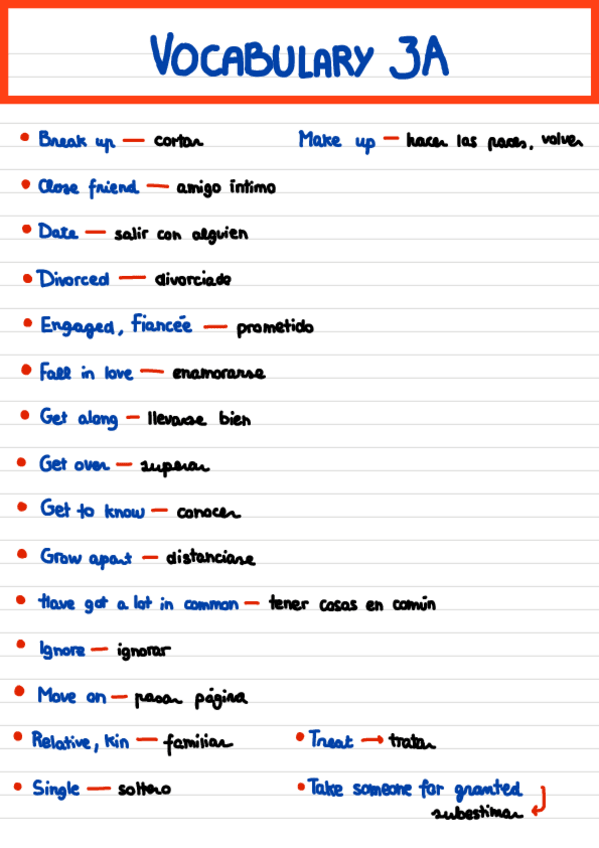 VOCABULARY 3A
• Break up — cortar
Make up — hacer las paces, volver
• Close friend — amigo íntimo
• Date — salir con alguien
• Divorced — divorciado
• Engaged, Fiancée — prometido
• Fall in love — enamorarse
• Get along — llevarse bien
• Get over — superar
• Get to know — conocer
• Grow apart — distanciarse
• Have got a lot in common — tener cosas en común
• Ignore — ignorar
• Move on — pasar página
• Relative, Kin — familiar
• Treat → tratar
• Single — soltero
• Take someone for granted
subestimar